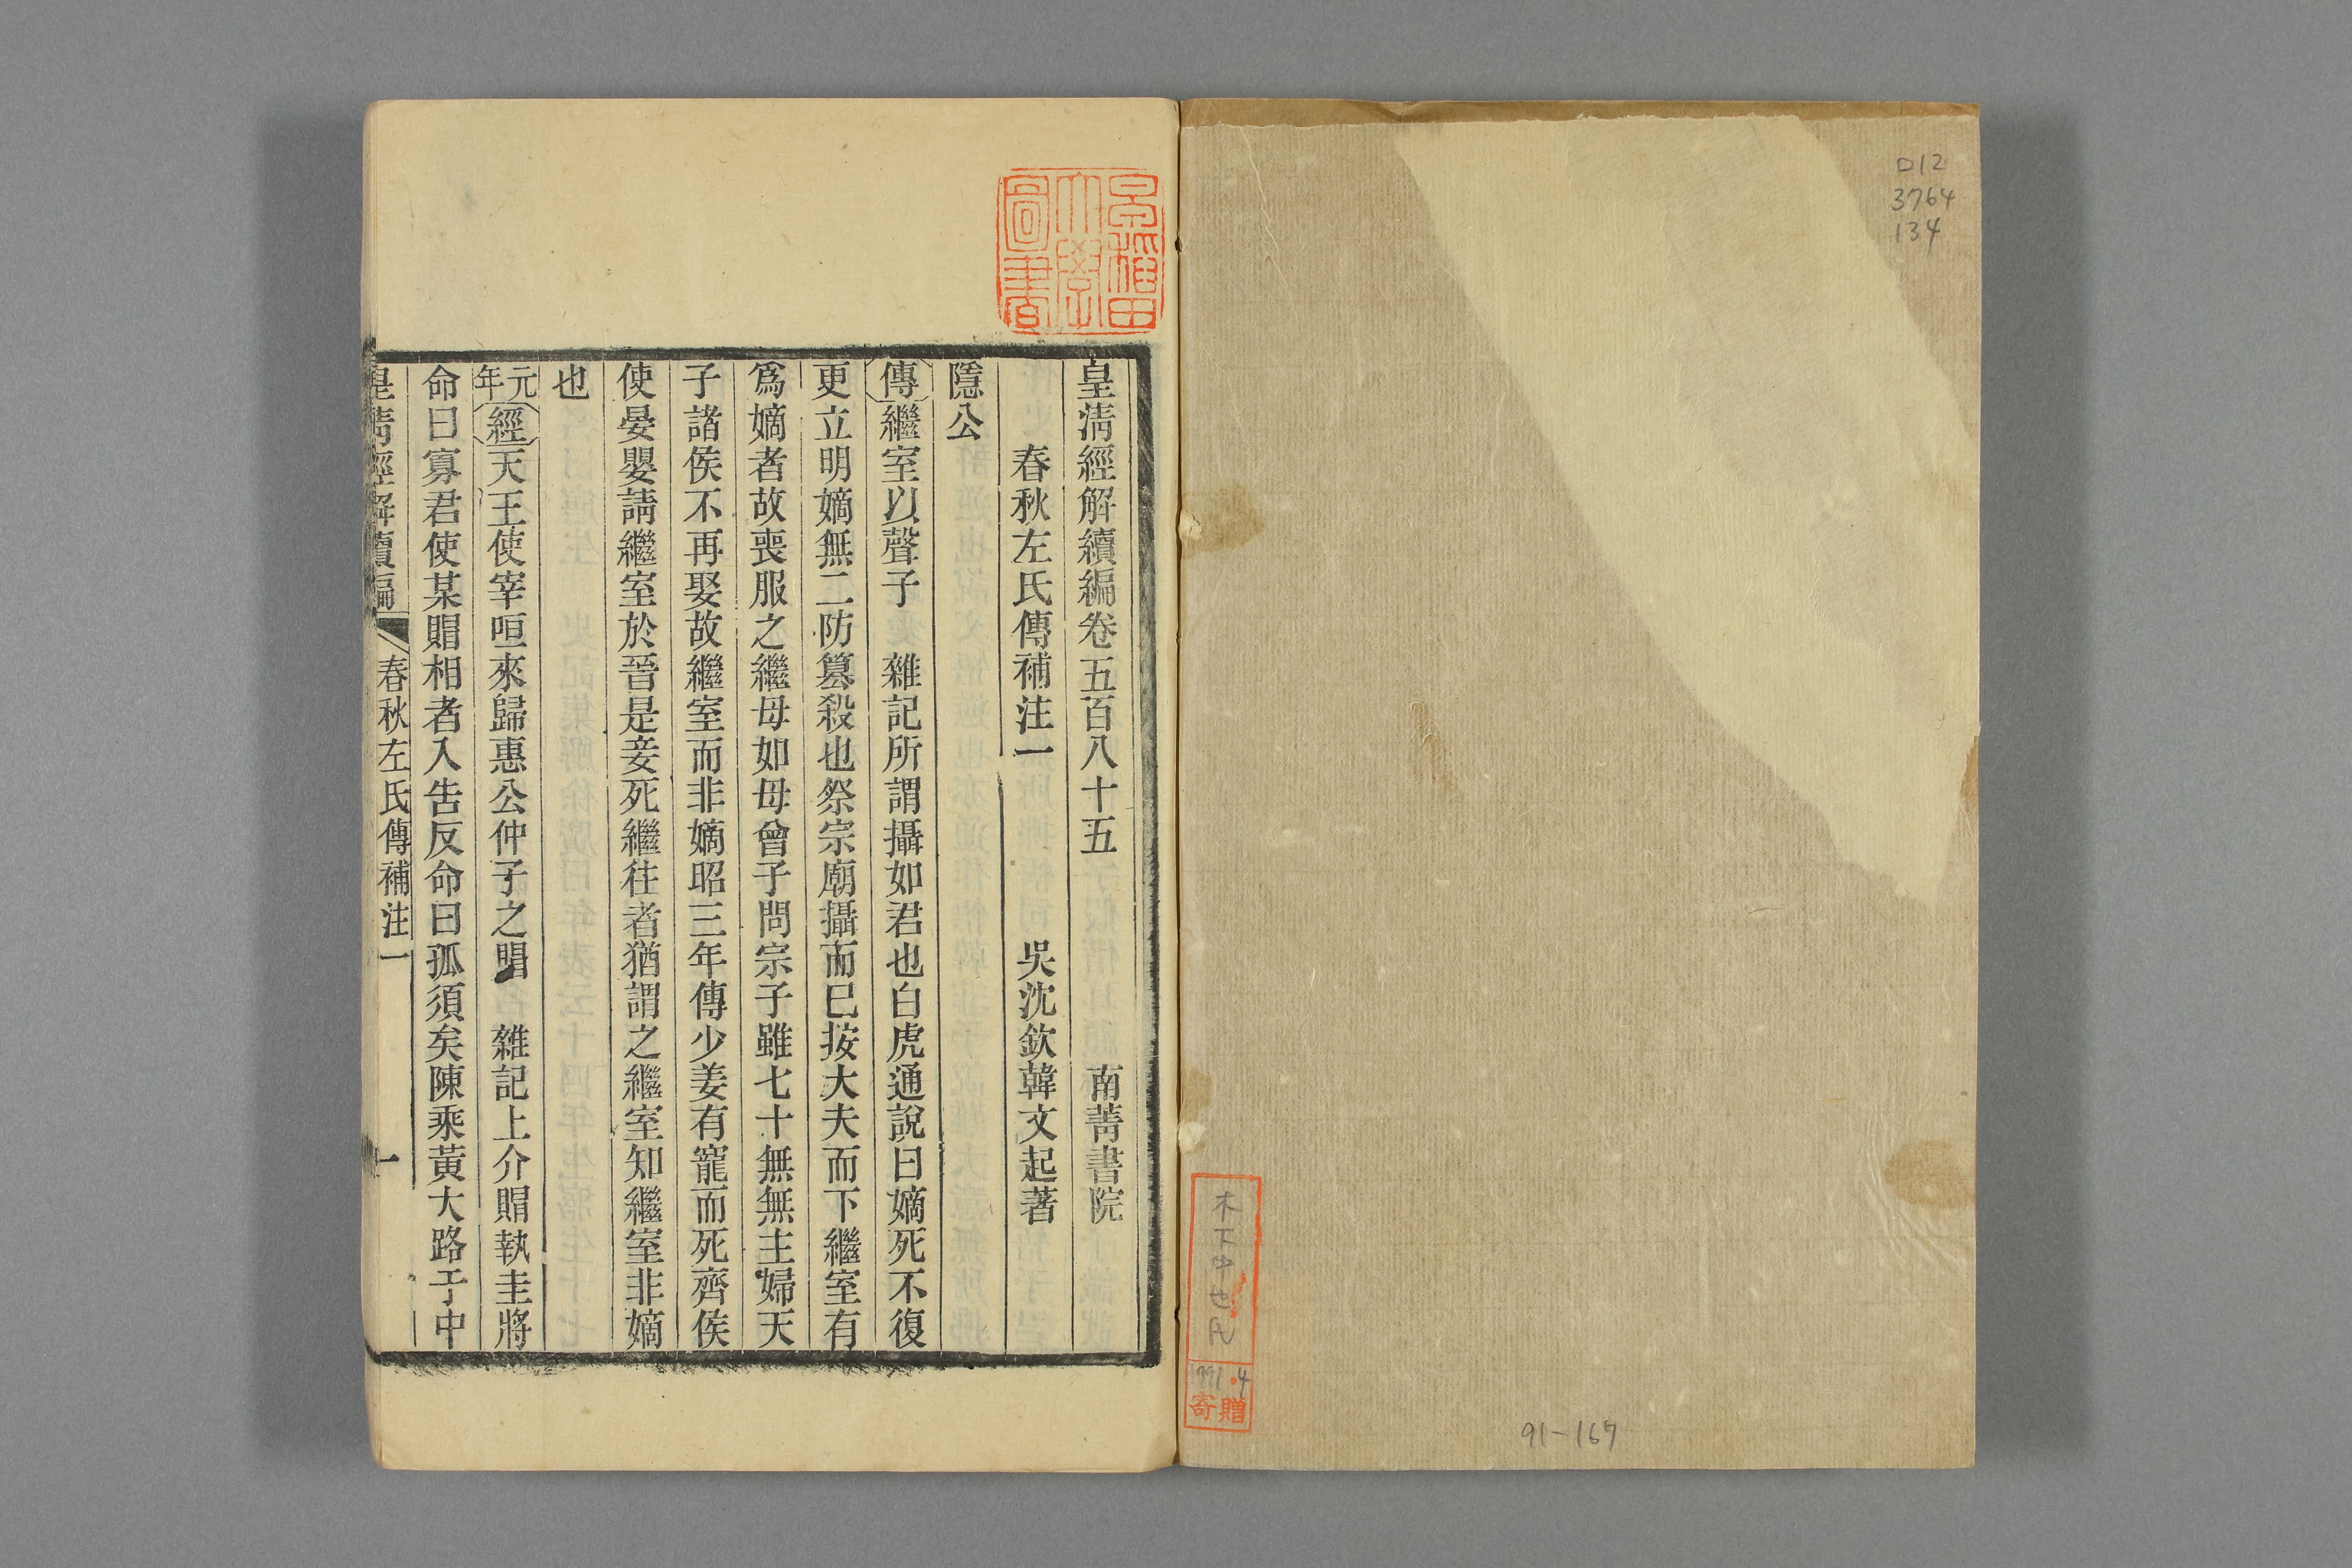 D12
3764
134
木下中也氏
1991.4
寄贈
91-167
早稲田大學圖書
皇清經解續編卷五百八十五 南菁書院
春秋左氏傳補注一 吳沈欽韓文起著
隱公
傳繼室以聲子 雜記所謂攝如君也白虎通說曰嫡死不復
更立明嫡無二防篡殺也祭宗廟攝而已按大夫而下繼室有
爲嫡者故喪服之繼母如母曾子問宗子雖七十無無主婦天
子諸侯不再娶故繼室而非嫡昭三年傳少姜有寵而死齊侯
使晏嬰請繼室於晉是妾死繼往者猶謂之繼室知繼室非嫡
也
元年經天王使宰咺來歸惠公仲子之賵 雜記上介賵執圭將
命曰寡君使某賵相者入告反命曰孤須矣陳乘黃大路于中
皇清經解續編 春秋左氏傳補注一 一